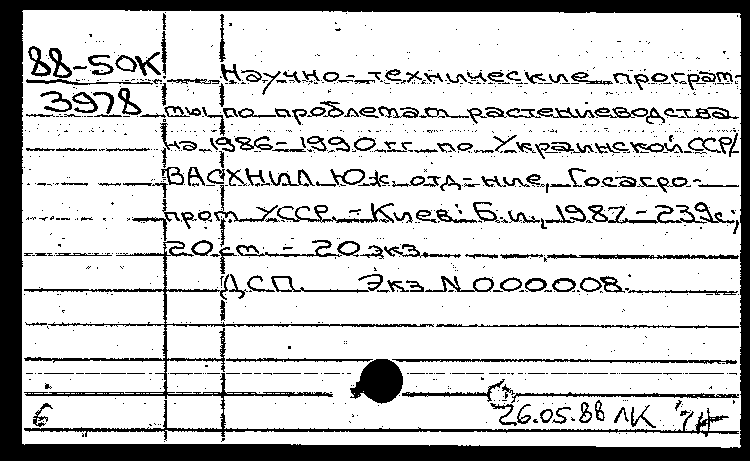 88-50К Научно-технические програм-
3978 мы по проблемам растениеводства
на 1986-1990 гг. по Украинской ССР/
ВАСХНИЛ. Юж. отд-ние, Госагро-
пром УССР. - Киев: Б.и., 1987. - 239с.;
20 см. - 20 экз.
ДСП. Экз N 000008.
6 26.05.88 ЛК